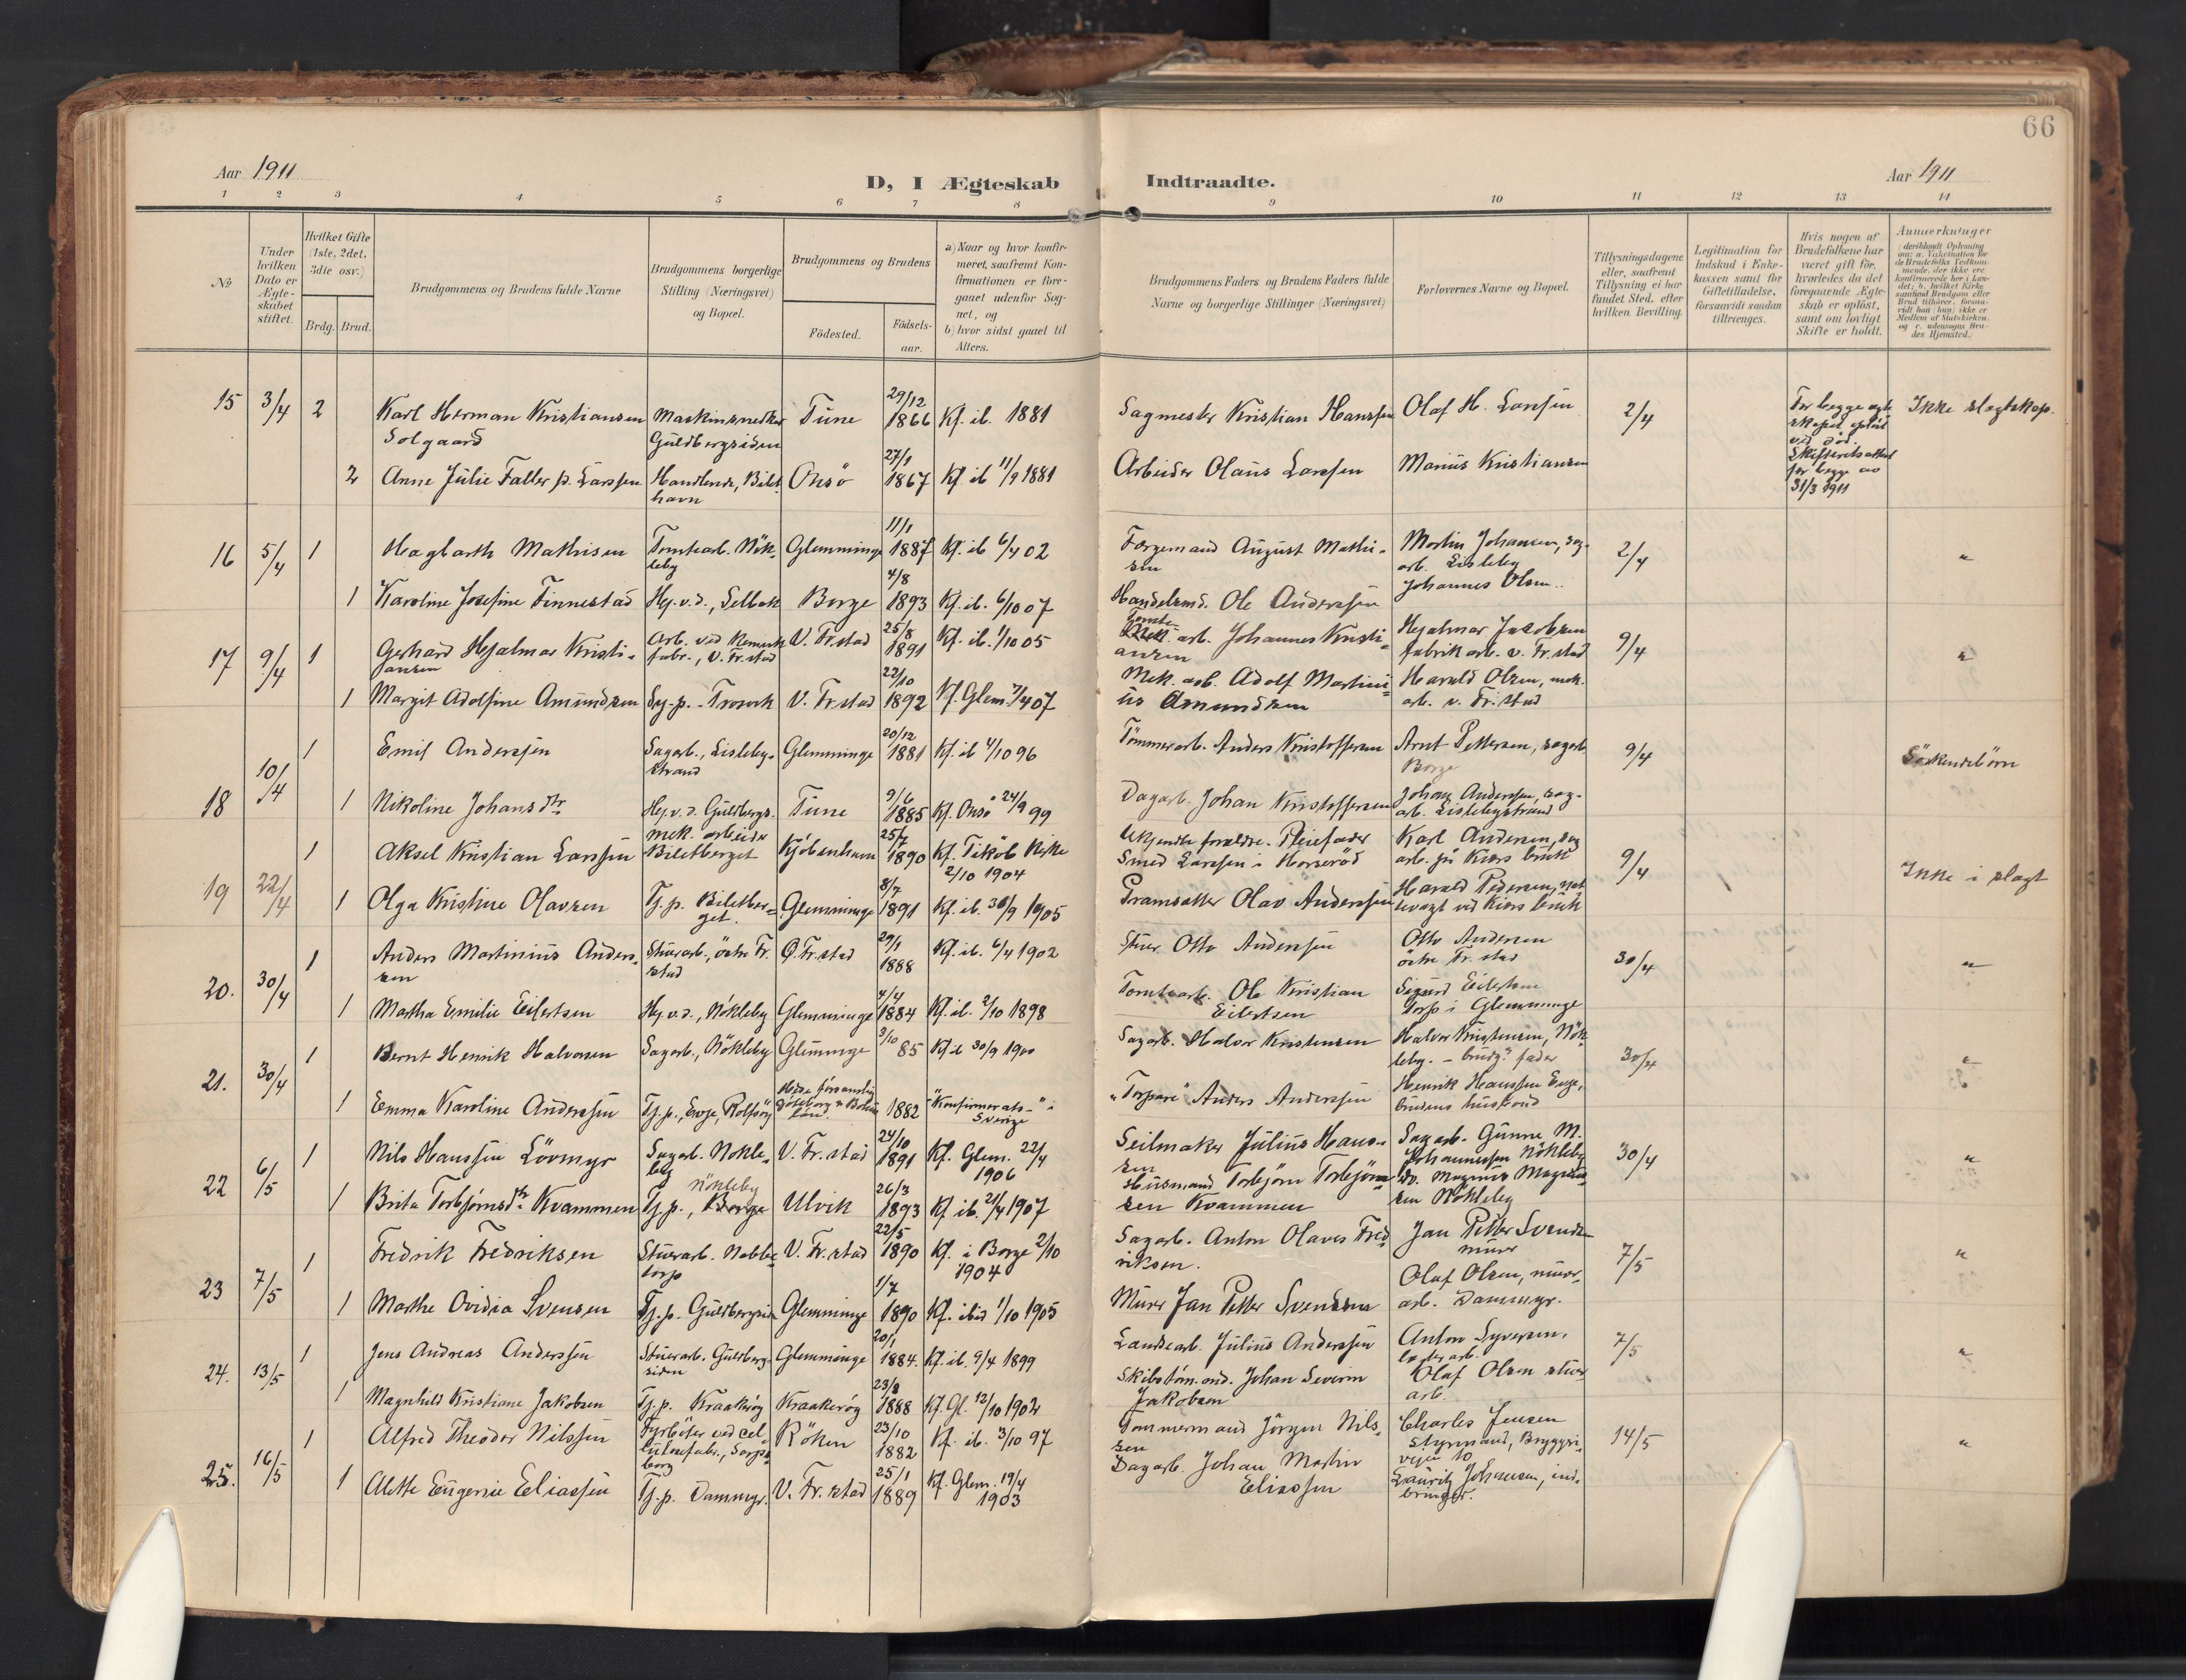 66
Aar 1911
D, I Ægteskab Indtraadte.
Aar 1911
1 2 3 4 5 6 7 8 9 10 11 12 13 14
No
Under hvilken Dato er Ægteskabet stiftet.
Hvilket Gifte (1ste, 2det, 3die osv.)
Brdg. Brud.
Brudgommens og Brudens fulde Navne
Brudgommens borgerlige Stilling (Næringsvei) og Bopæl.
Brudgommens og Brudens
Födested.
Födsels-aar.
a) Naar og hvor konfirmeret, saafremt Konfirmationen er foregaaet udenfor Sognet, og
b) hvor sidst gaaet til Alters.
Brudgommens Faders og Brudens Faders fulde Navne og borgerlige Stillinger (Næringsvei)
Forlovernes Navne og Bopæl.
Tillysningsdagene eller, saafremt Tillysning ei har fundet Sted, efter hvilken Bevilling.
Legitimation for Indskud i Enkekassen samt for Giftetilladelse, forsaavidt saadan tiltrænges.
Hvis nogen af Brudefolkene har været gift för, hvorledes da det foregaaende Ægteskab er oplöst, samt om lovligt Skifte er holdt.
Anmærkninger
15 3/4 2 Karl Herman Kristiansen Solgaard Maskinsnedker Guldbergsiden Tune 29/12 1866 Kf. ib. 1881 Sagmester Kristian Hanssen Olaf H. Larssen 2/4 For begge egteskapet opløst ved død. Skifteretsattest for begge av 31/3 1911 Ikke slegtskap.
2 Anne Julie Faller f. Larssen Handlende, Bilethavn Onsø 27/1 1867 Kf. ib 11/9 1881 Arbeider Olaus Larssen Marius Kristiansen
16 5/4 1 Hagbarth Mathisen Tomtearb. Nökleby Glemminge 11/1 1887 Kf. ib 6/4 02 Færgemand August Mathisen Martin Johansen, sagarb. Lisleby 2/4 "
1 Karoline Josefine Finnestad Hj.v.d., Selbak Borge 4/8 1893 Kf. ib. 6/10 07 Handelsmd. Ole Anderssen Johannes Olsen..
17 9/4 1 Gerhard Hjalmar Kristiansen Arb. ved Kemisk fabr., V. Fr.stad V. Fr.stad 25/8 1891 Kf. ib. 1/10 05 Tomtearb. Johannes Kristiansen Hjalmar Jacobsen fabrikarb. v. Fr.stad 9/4 "
1 Margit Adolfine Amundsen Sy.p. - Trosvik V. Fr.stad 22/10 1892 Kf. Glem. 7/4 07 Mek. arb. Adolf Martinius Amundsen Harald Olsen, mek. arb. v. Fr.stad
18 10/4 1 Emil Anderssen Sagarb., Lislebystrand Glemminge 20/12 1881 Kf. ib 4/10 96 Tömmerarb. Anders Kristoffersen Arnt Pettersen, sagarb. Borge 9/4 Söskendebörn
1 Nikoline Johansdtr Hj.v.d. Guldbergs. Tune 9/6 1885 Kf. Onsø 24/9 99 Dagarb. Johan Kristoffersen Johan Andersen, sagarb. Lislebystrand
19 22/4 1 Aksel Kristian Larssen Mek. arbeider Biletberget Kjöbenhavn 25/7 1890 Kf. Tiköb Kirke 2/10 1904 Ukjendte forældre. Pleiefader Smed Larssen i Horserød Karl Andersen, sagarb. på Kiærs bruk 9/4 Ikke i slegt
1 Olga Kristine Olavsen Tj.p. Biletberget Glemminge 8/7 1891 Kf. ib. 30/9 1905 Pramsætter Olav Anderssen Harald Pedersen, natvagt ved Kiærs bruk
20. 30/4 1 Anders Martinius Anderssen Stuerarb., östre Fr.stad Ö. Fr.stad 29/1 1888 Kf. ib. 6/4 1902 Stuer Otto Anderssen Otto Andersen östre Fr.stad 30/4 "
1 Martha Emilie Eilertsen Hj.v.d., Nökleby Glemminge 4/4 1884 Kf. ib. 2/10 1898 Tomtearb. Ole Kristian Eilertsen Sigurd Eilertsen Torp i Glemminge
21. 30/4 1 Bernt Henrik Halvorsen Sagarb., Nökleby Glemminge 3/10 85 Kf. ib 30/9 1900 Sagarb. Halvor Kristensen Halvor Kristensen, Nökleby. - brudg.s fader 30/4 "
1 Emma Karoline Anderssen Tj.p., Enge, Rolfsöy 1882 "Konfirmerats" i Sverige "Torpare" Anders Anderssen Henrik Hanssen Enge, brudens husbond
22 6/5 1 Nils Hanssen Lövmyr Sagarb. Nökleby V. Fr.stad 24/10 1891 Kf. Glem. 22/4 1906 Seilmaker Julius Hanssen Sagarb. Gunne M. Johannessen Nökleby 30/4 "
1 Brita Torbjörnsdtr Kvammen Tj.p., Nökleby Ulvik 26/3 1893 Kf. ib. 21/4 1907 Husmand Torbjörn Torbjörnsen Kvammen Do. Magnus Magnussen Nökleby
23 7/5 1 Fredrik Fredriksen Stuerarb. Nabbetorp V. Fr.stad 22/5 1890 Kf. i Borge 2/10 1904 Sagarb. Anton Olaves Fredriksen. Jan Petter Svendsen murer 7/5 "
1 Marthe Ovidia Svensen Tj.p. Guldbergsiden Glemminge 1/7 1890 Kf. ibid 1/10 1905 Murer Jan Petter Svendsen Olaf Olsen, murarb. Dammyr.
24. 13/5 1 Jens Andreas Anderssen Stuerarb. Guldbergsiden Glemminge 20/1 1884. Kf. ib. 9/4 1899 Landsearb. Julius Anderssen Anton Syversen, lastearb. 7/5 "
1 Magnhild Kristiane Jakobsen Tj.p. Kraakeröy Kraakeröy 23/8 1888 Kf. Gl. 12/10 1902 Skibstöm.md. Johan Severin Jakobsen Olaf Olsen stuerarb.
25. 16/5 1 Alfred Theodor Nilssen Fyrböter ved cellulosefabr., Sarpsborg Röken 23/10 1882 Kf. ib. 3/10 97 Tømmermand Jörgen Nilssen Charles Jensen styrmand, Bryggeriveien 10 14/5 "
1 Alette Eugenie Eliassen Tj.p. Dammyr. V. Fr.stad 25/1 1889 Kf. Glem. 19/4 1903 Dagarb. Johan Martin Eliassen Lauritz Johansen, indbringer.